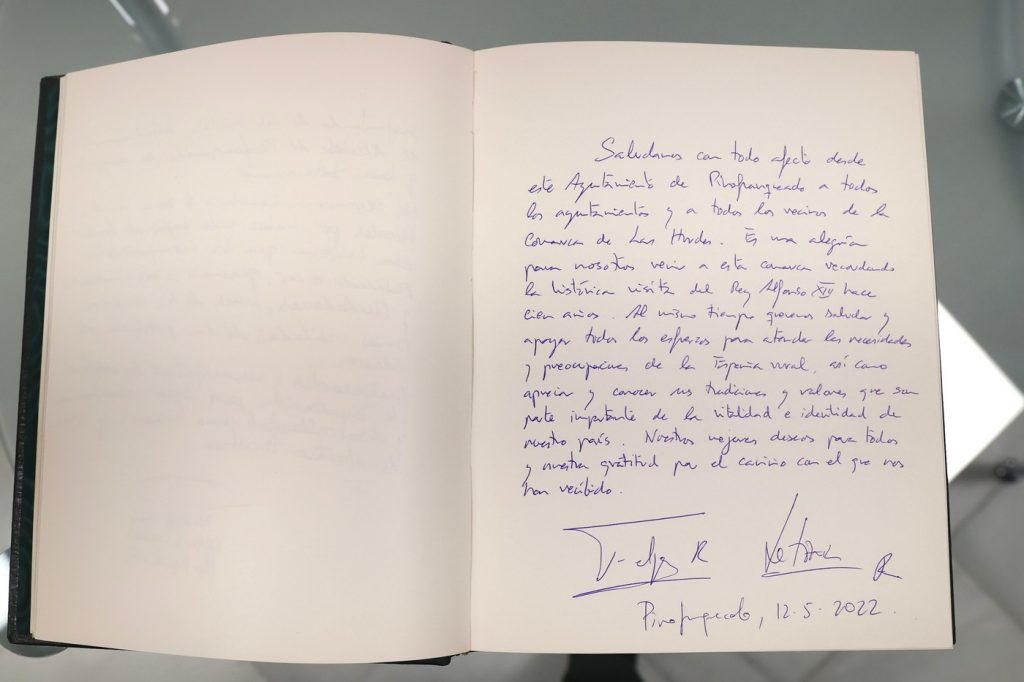 Saludamos con todo afecto desde
este Ayuntamiento de Pinofranqueado a todos
los ayuntamientos y a todos los vecinos de la
Comarca de Las Hurdes. Es una alegría
para nosotros venir a esta comarca recordando
la histórica visita del Rey Alfonso XIII hace
cien años. Al mismo tiempo queremos saludar y
apoyar todos los esfuerzos para atender las necesidades
y preocupaciones de la España rural, así como
apreciar y conocer sus tradiciones y valores que son
parte importante de la vitalidad e identidad de
nuestro país. Nuestros mejores deseos para todos
y nuestra gratitud por el cariño con el que nos
han recibido.
Felipe R Letizia R
Pinofranqueado, 12.5.2022.